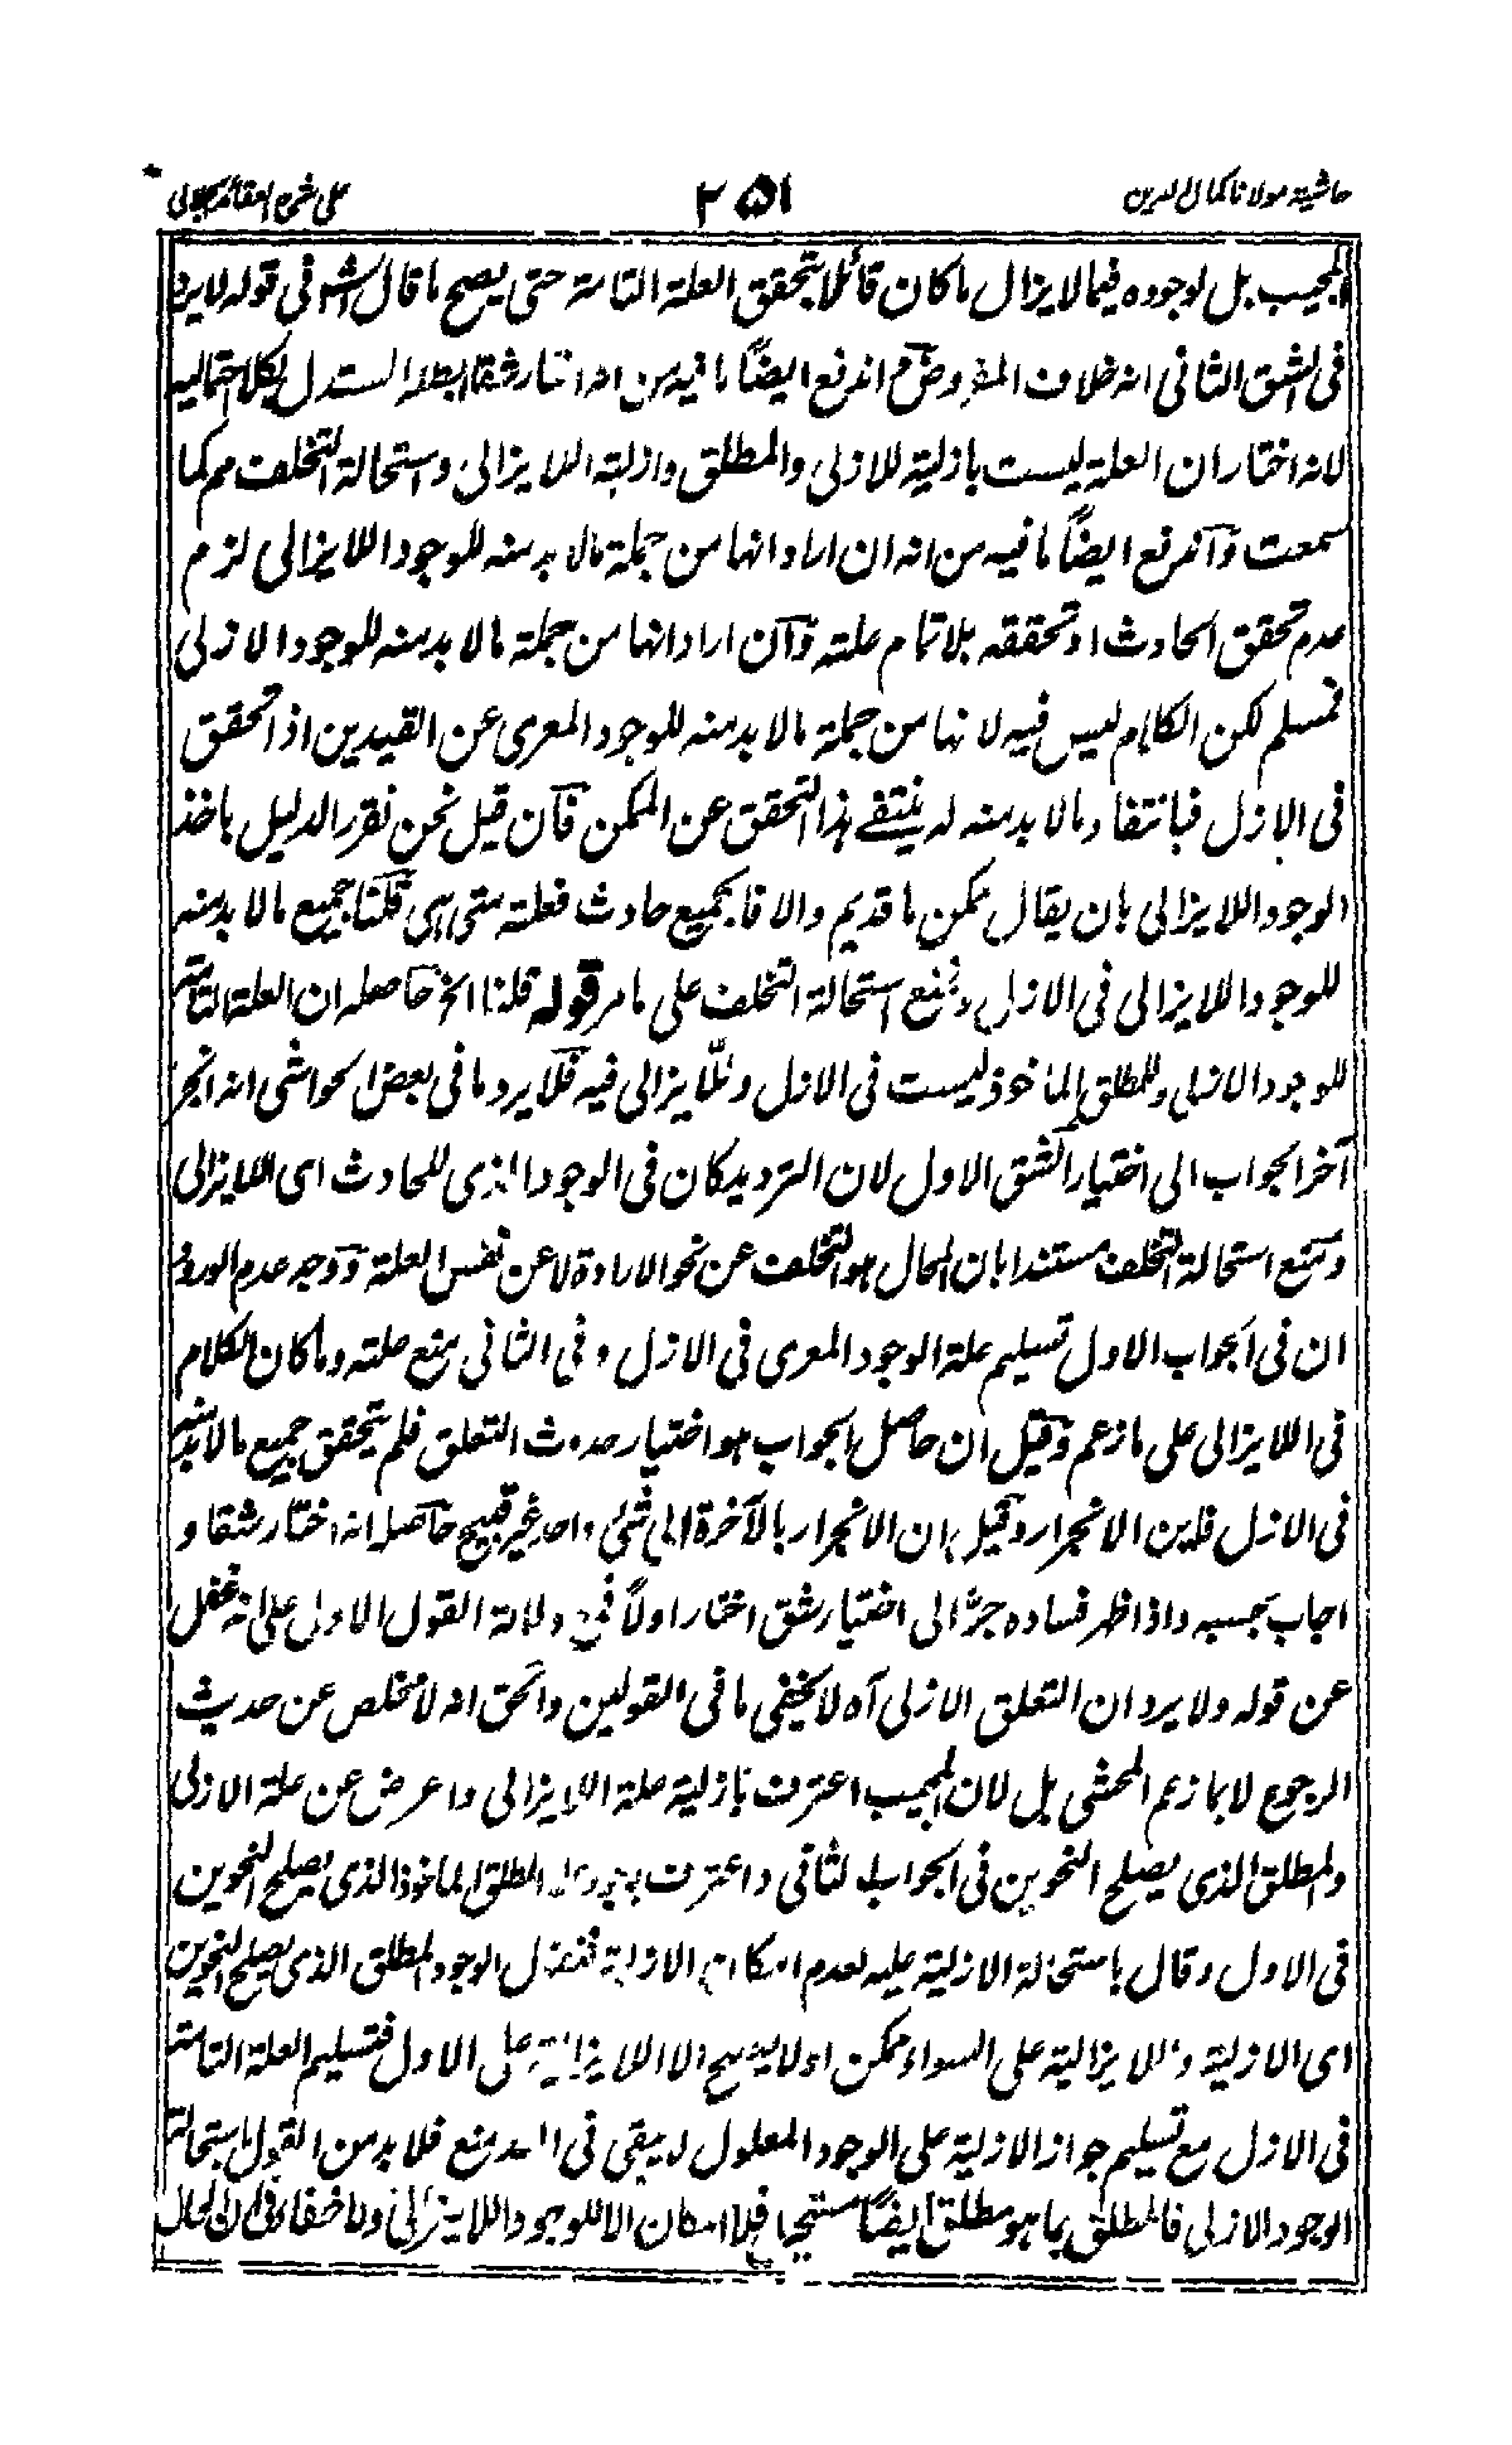 حاشیة مولانا کمال الدین
۲۵۱
علی شرح العقائد الجلالی
المجیب بل لوجوده فیما لا یزال ما کان قائلا بتحقق العلة التامة حتی یصح ما قال الش فی قوله لا یرد
فی الشق الثانی انه خلاف المفروض م اندفع ایضاً ما فیه من انه اختار شقا ابطله المستدل بکلا احتمالیه
لانه اختار ان العلة لیست بازلیة للازلی والمطلق وازلیة اللایزالی واستحالة التخلف مم کما
سمعت واندفع ایضاً ما فیه من انه ان اراد انها من جملة مالا بد منه للوجود اللایزالی لزم
عدم تحقق الحادث او تحققه بلا تمام علته وان اراد انها من جملة مالا بد منه للوجود الازلی
فمسلم لکن الکلام لیس فیه لانها من جملة مالا بد منه للوجود المعری عن القیدین اذا تحقق
فی الازل فبانتفاء مالا بد منه له ینتفے هذا التحقق عن الممکن فان قیل نحن نقرر الدلیل باخذ
الوجود اللایزالی بان یقال ممکن ما قدیم والا فالجمیع حادث فعلته متی هی قلنا جمیع مالا بد منه
للوجود اللایزالی فی الازل ونمنع استحالة التخلف علی ما مر قوله قلنا الخ حاصله ان العلة التامة
للوجود الازلی وللمطلق الماخوذ لیست فی الازل وللایزالی فیه فلا یرد ما فی بعض الحواشی انه انجر
آخر الجواب الی اختیار الشق الاول لان التردید کان فی الوجود الذی للحادث ای اللایزالی
ومنع استحالة التخلف مستندا بان المحال هو التخلف عن نحو الارادة لا عن نفس العلة ووجه عدم الورود
ان فی الجواب الاول تسلیم علة الوجود المعری فی الازل وفی الثانی منع علته وما کان الکلام
فی اللایزالی علی ما زعم وقیل ان حاصل الجواب هو اختیار حدوث التعلق فلم یتحقق جمیع مالا بد منه
فی الازل فاین الانجرار وقیل بان الانجرار بالآخرة الی شئ واحد غیر قبیح حاصله انه اختار شقا و
اجاب بحسبه واذا ظهر فساده جرّ الی اختیار شق اختار اولاً دلالة القول الاول علی انه غفل
عن قوله ولا یرد ان التعلق الازلی آه لا یخفی ما فی القولین والحق انه لا مخلص عن حدیث
الرجوع لا بما زعم المحشی بل لان المجیب اعترف بازلیة علة اللایزالی واعرض عن علة الازلی
والمطلق الذی یصلح النحوین فی الجواب الثانی واعترف المطلق الماخوذ الذی یصلح النحوین
فی الاول وقال باستحالة الازلیة علیه لعدم امکان الازلیة فنقول الوجود المطلق الذی یصلح النحوین
ای الازلیة واللایزالیة علی السواء ممکن اولا یصح الا اللایزالیة علی الاول فتسلیم العلة التامة
فی الازل مع تسلیم جواز الازلیة علی الوجود المعلول لا یبقی فی الید منع فلا بد من القول باستحالة
الوجود الازلی فالمطلق بما هو مطلق ایضاً مستحیل فلا امکان الا للوجود اللایزالی ولا خفاء فی ان المحال